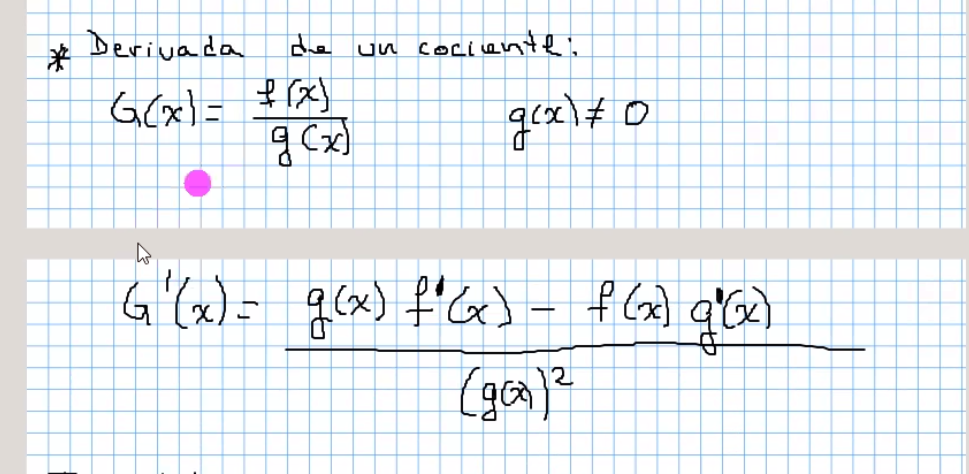 * Derivada de un cociente:
G(x) = f(x) / g(x)    g(x) ≠ 0
G'(x) = g(x) f'(x) - f(x) g'(x) / (g(x))²